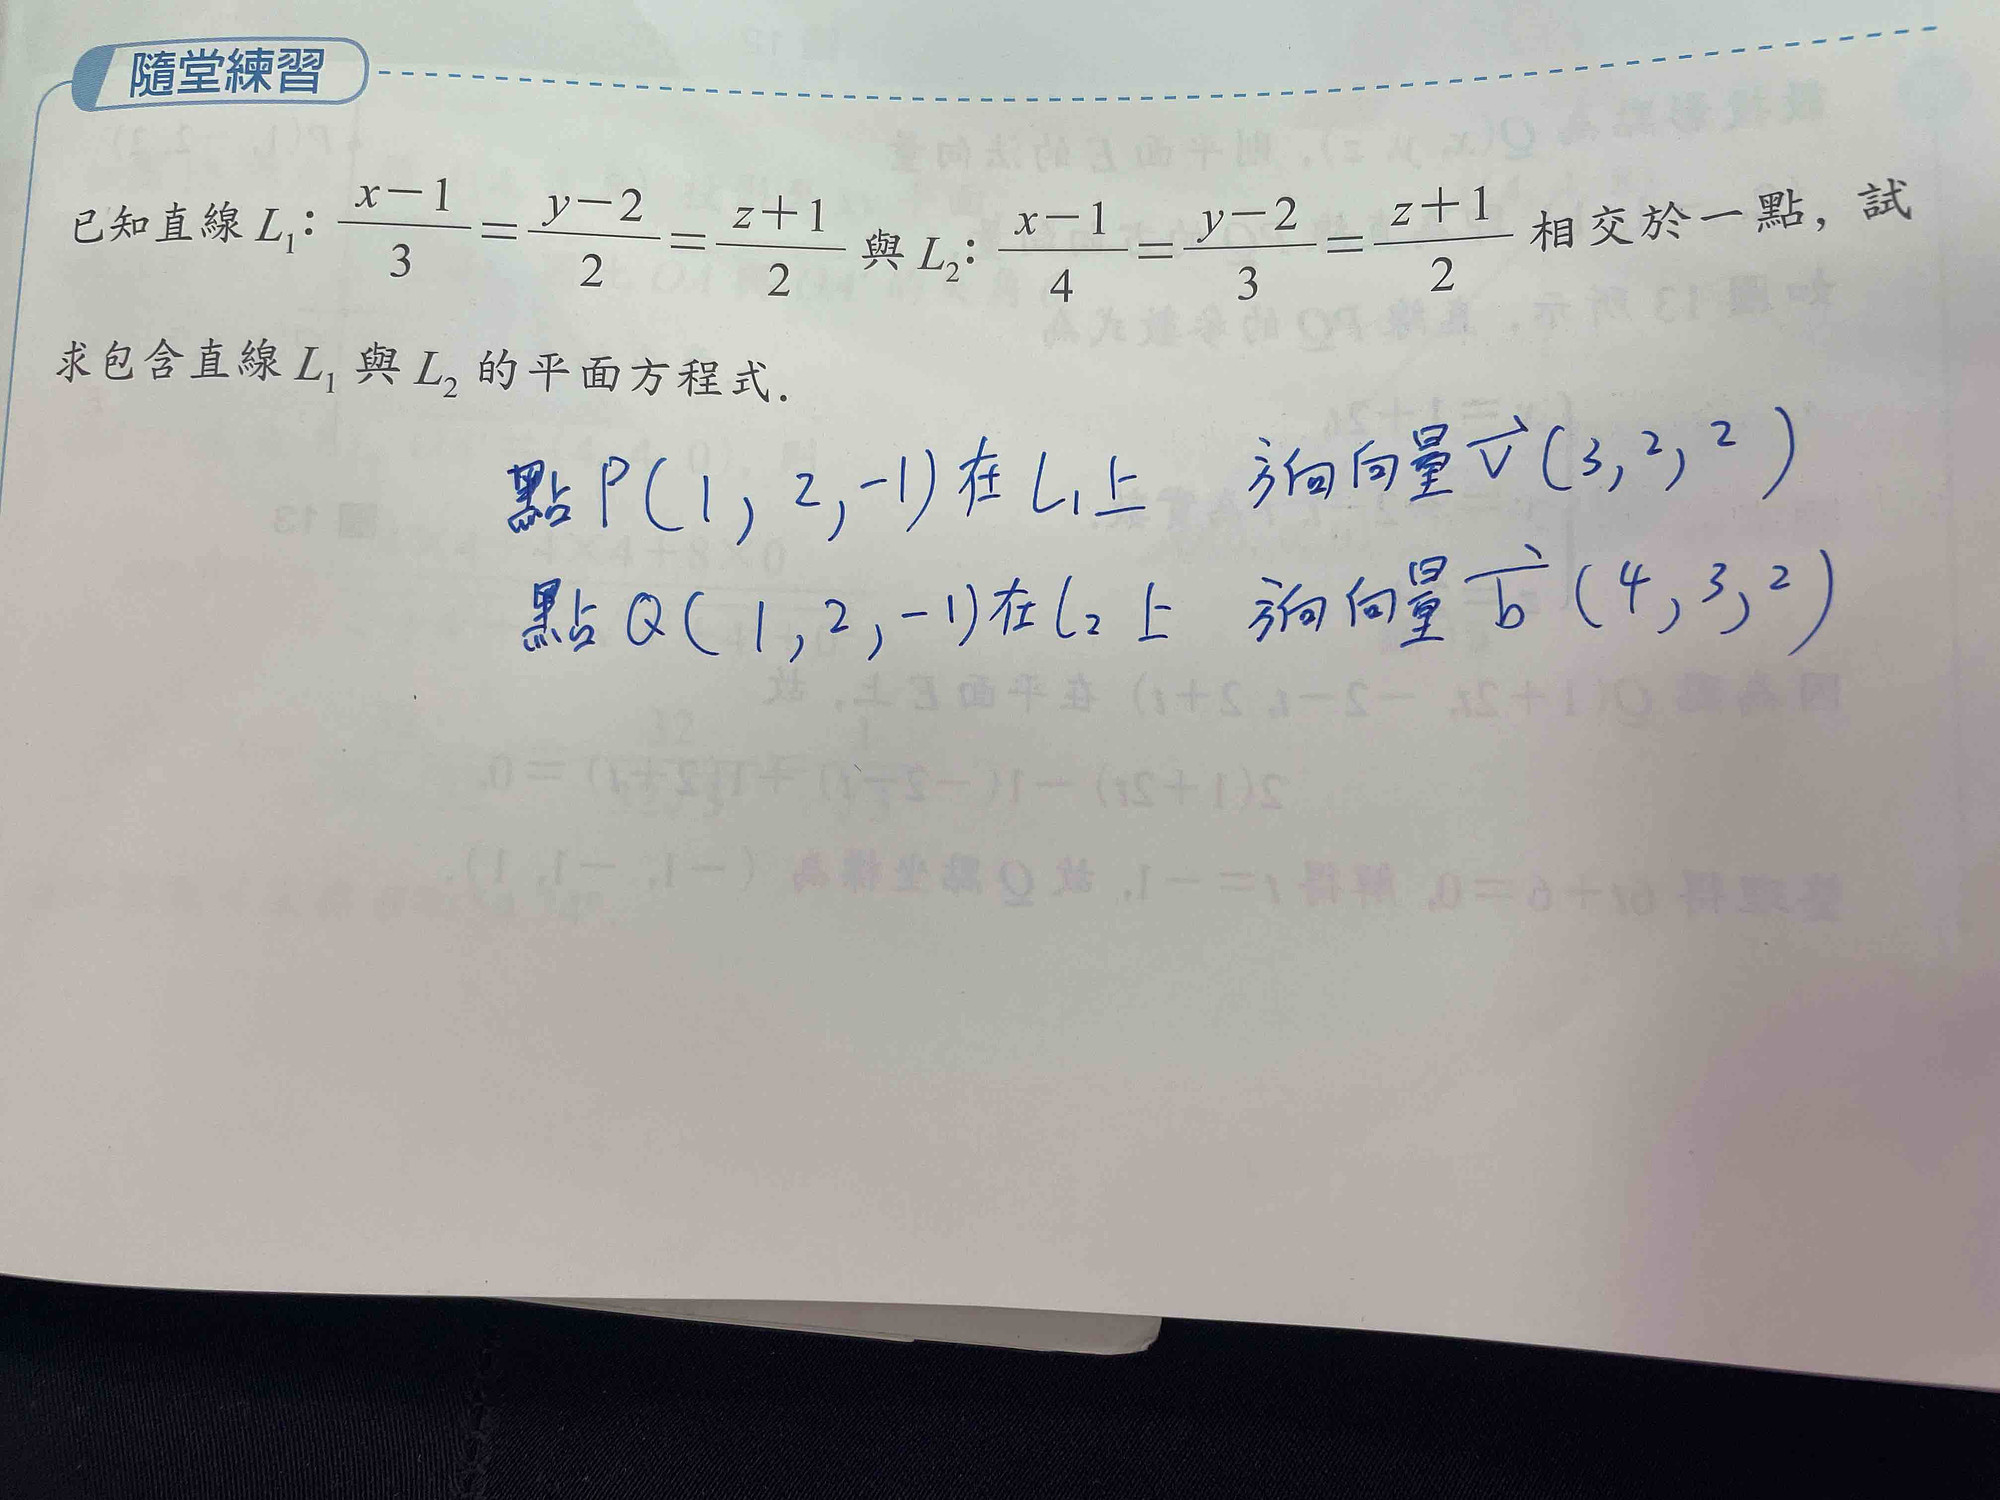 隨堂練習
已知直線 L₁：(x−1)/3＝(y−2)/2＝(z+1)/2 與 L₂：(x−1)/4＝(y−2)/3＝(z+1)/2 相交於一點，試
求包含直線 L₁ 與 L₂ 的平面方程式．
點 P(1, 2, -1) 在 L₁ 上 方向向量 v⃗ (3, 2, 2)
點 Q(1, 2, -1) 在 L₂ 上 方向向量 b⃗ (4, 3, 2)